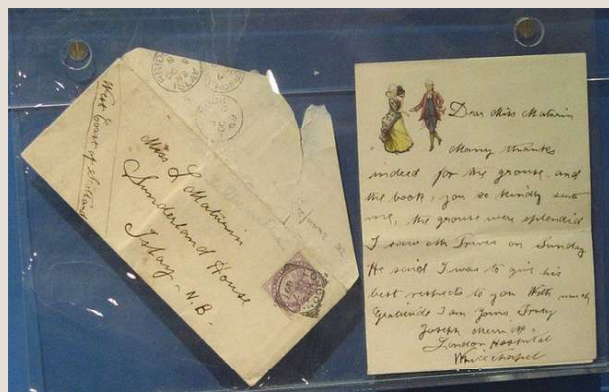 West Coast of Scotland
Miss L Maturin
Sunderland House
Islay - N.B.
Dear Miss Maturin
Many thanks
indeed for the grouse, and
the book, you so kindly sent
me, the grouse were splendid
I saw Mr Treves on Sunday
He said I was to give his
best respects to you With much
Gratitude I am Yours Truly
Joseph Merrick.
London Hospital
Whitechapel